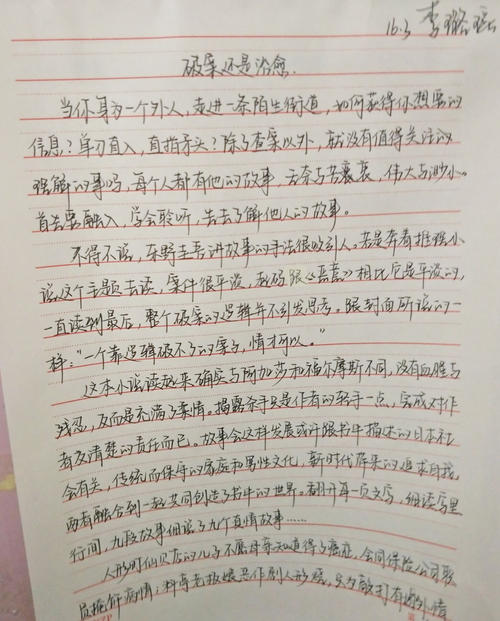 16.3 李璐瑶
破案还是治愈.
当你身为一个外人,走进一条陌生街道,如何获得你想要的
信息?单刀直入,直指矛头?除了查案以外,就没有值得关注的
理解的事吗,每个人都有他的故事,伟大与渺小。
首先要融入,学会聆听,先去了解他人的故事。
不得不说,东野圭吾讲故事的手法很吸引人。若是奔着推理小
说这个主题去读,案件很平淡,起码跟《恶意》相比它是平淡的,
一直读到最后,整个破案的逻辑并不引发思考。跟封面所说的一
样:"一个靠逻辑破不了的案子,情才可以。"
这本小说读起来确实与阿加莎和福尔摩斯不同,没有血腥与
残忍,反而是充满了柔情。揭露杀手只是作者的轻手一点,完成对作
者交清楚的责任而已。故事会这样发展或许跟书中描述的日本社
会有关,传统而保守的家庭和男性文化,新时代降来的追求自我,
两者融合到一起共同创造了书中的世界。翻开每一页文字,细读字里
行间,九段故事细说了九个真情故事……
人形町仙贝店的儿子不愿母亲知道得了癌症,会同保险公司职
员掩饰病情;料亭老板娘恶作剧人形烧,只为敲打有婚外情